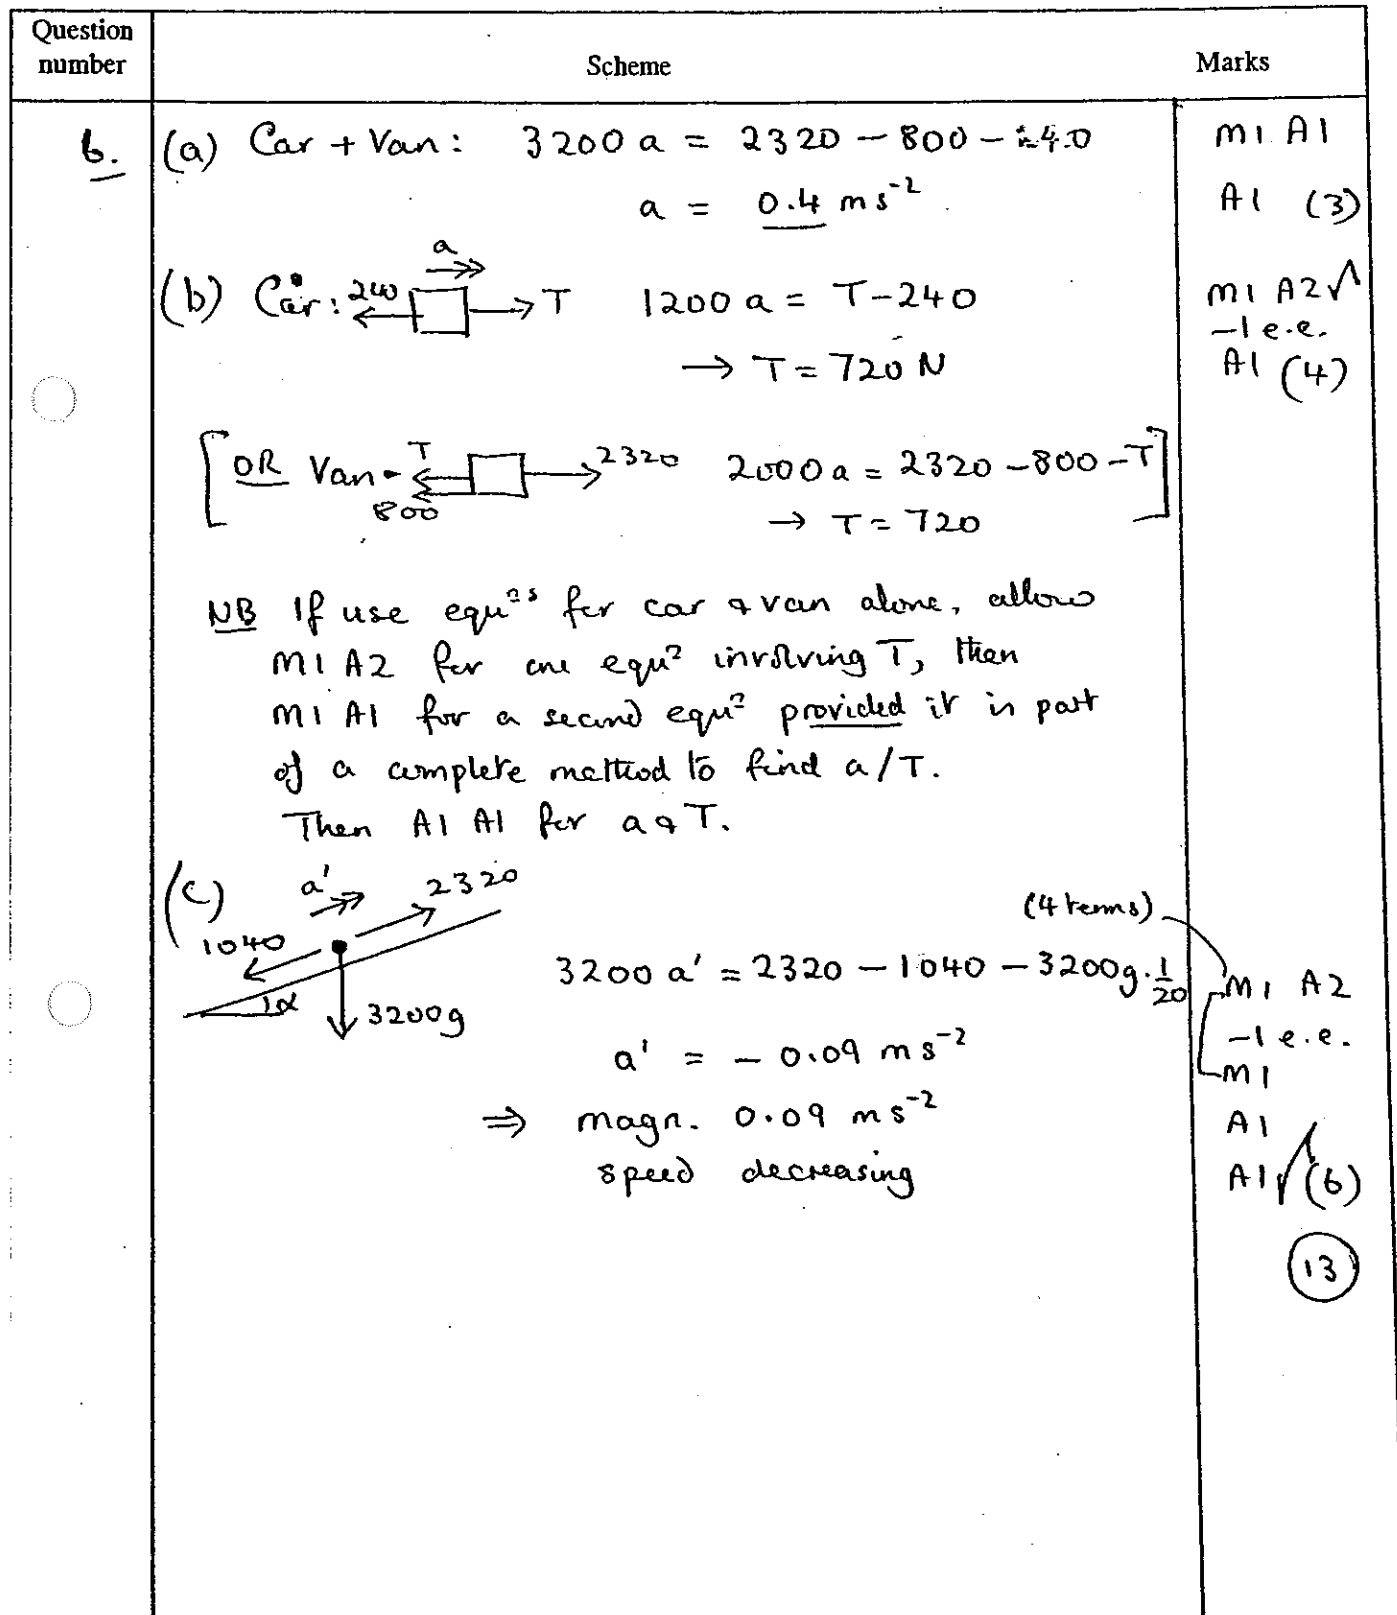 Question number
Scheme
Marks
6.
(a) Car + Van: 3200 a = 2320 – 800 – 240
M1 A1
a = 0.4 ms⁻²
A1 (3)
a
(b) Car: 240 T 1200 a = T – 240
M1 A2√
–1 e.e.
→ T = 720 N
A1 (4)
[OR Van T 800 2320 2000 a = 2320 – 800 – T
→ T = 720]
NB If use equⁿˢ for car & van alone, allow
M1 A2 for one equⁿ involving T, then
M1 A1 for a second equⁿ provided it is part
of a complete method to find a/T.
Then A1 A1 for a & T.
(c) a' 2320
1040
α 3200g
(4 terms)
3200 a' = 2320 – 1040 – 3200g.1/20
M1 A2
–1 e.e.
a' = – 0.09 ms⁻²
M1
⇒ magn. 0.09 ms⁻²
A1
speed decreasing
A1√ (6)
13